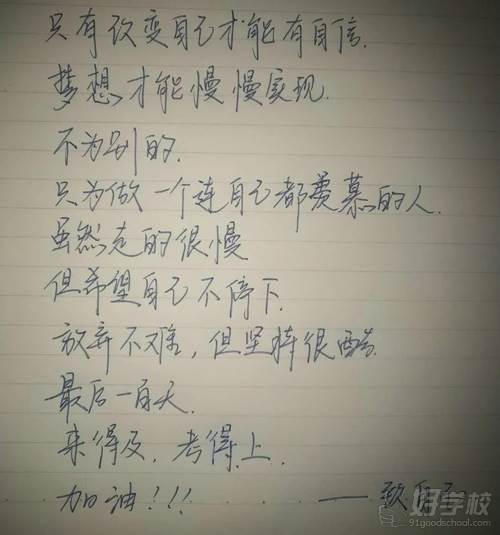 只有改变自己才能有自信.
梦想才能慢慢实现.
不为别的.
只为做一个连自己都羡慕的人.
虽然走的很慢
但希望自己不停下.
放弃不难，但坚持很酷.
最后一百天.
来得及.考得上.
加油！！！ ——致自己
好学校
91goodschool.com